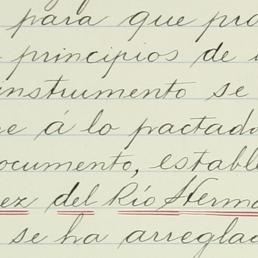 para que pro
principios de
instrumento se
e á lo pactado
ocumento, estable
ez del Río Herma
se ha arreglad